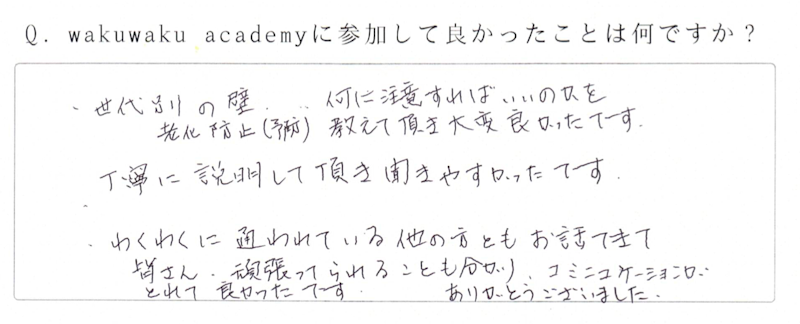 Q. wakuwaku academyに参加して良かったことは何ですか？
・世代別の壁..... 何に注意すればいいのかを
老化防止(予防) 教えて頂き大変良かったです.
丁寧に説明して頂き聞きやすかったです.
・わくわくに通われている他の方ともお話できて
皆さん、頑張ってられることも分かり、コミニコケーションが
とれて良かったです. ありがとうございました.